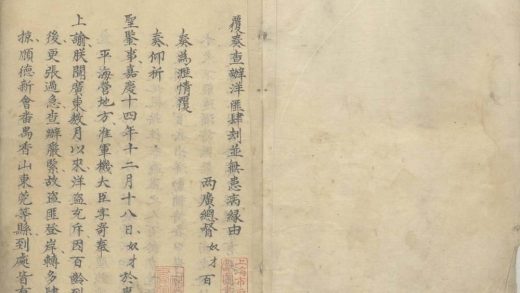 覆奏查辦洋匪肆刦並無患病緣由
兩廣總督奴才百
奏為瀝情覆
奏仰祈
聖鑒事嘉慶十四年十二月十八日奴才於
平海營地方准軍機大臣字寄奉
上諭朕聞廣東數月以來洋盜充斥因百齡到
後更張過急查辦嚴緊故盜匪登岸轉多肆
掠順德新會番禺香山東莞等縣到處皆有
上海市